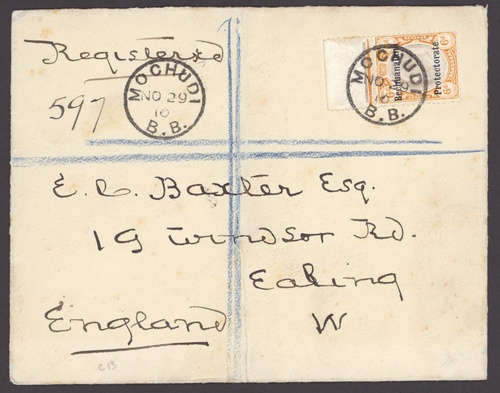 Registered
597
MOCHUDI
NO 29
10
B.B.
MOCHUDI
NO 29
10
B.B.
Bechuanaland
Protectorate
6d
E. C. Baxter Esq.
19 Windsor Rd.
Ealing
England W
CB